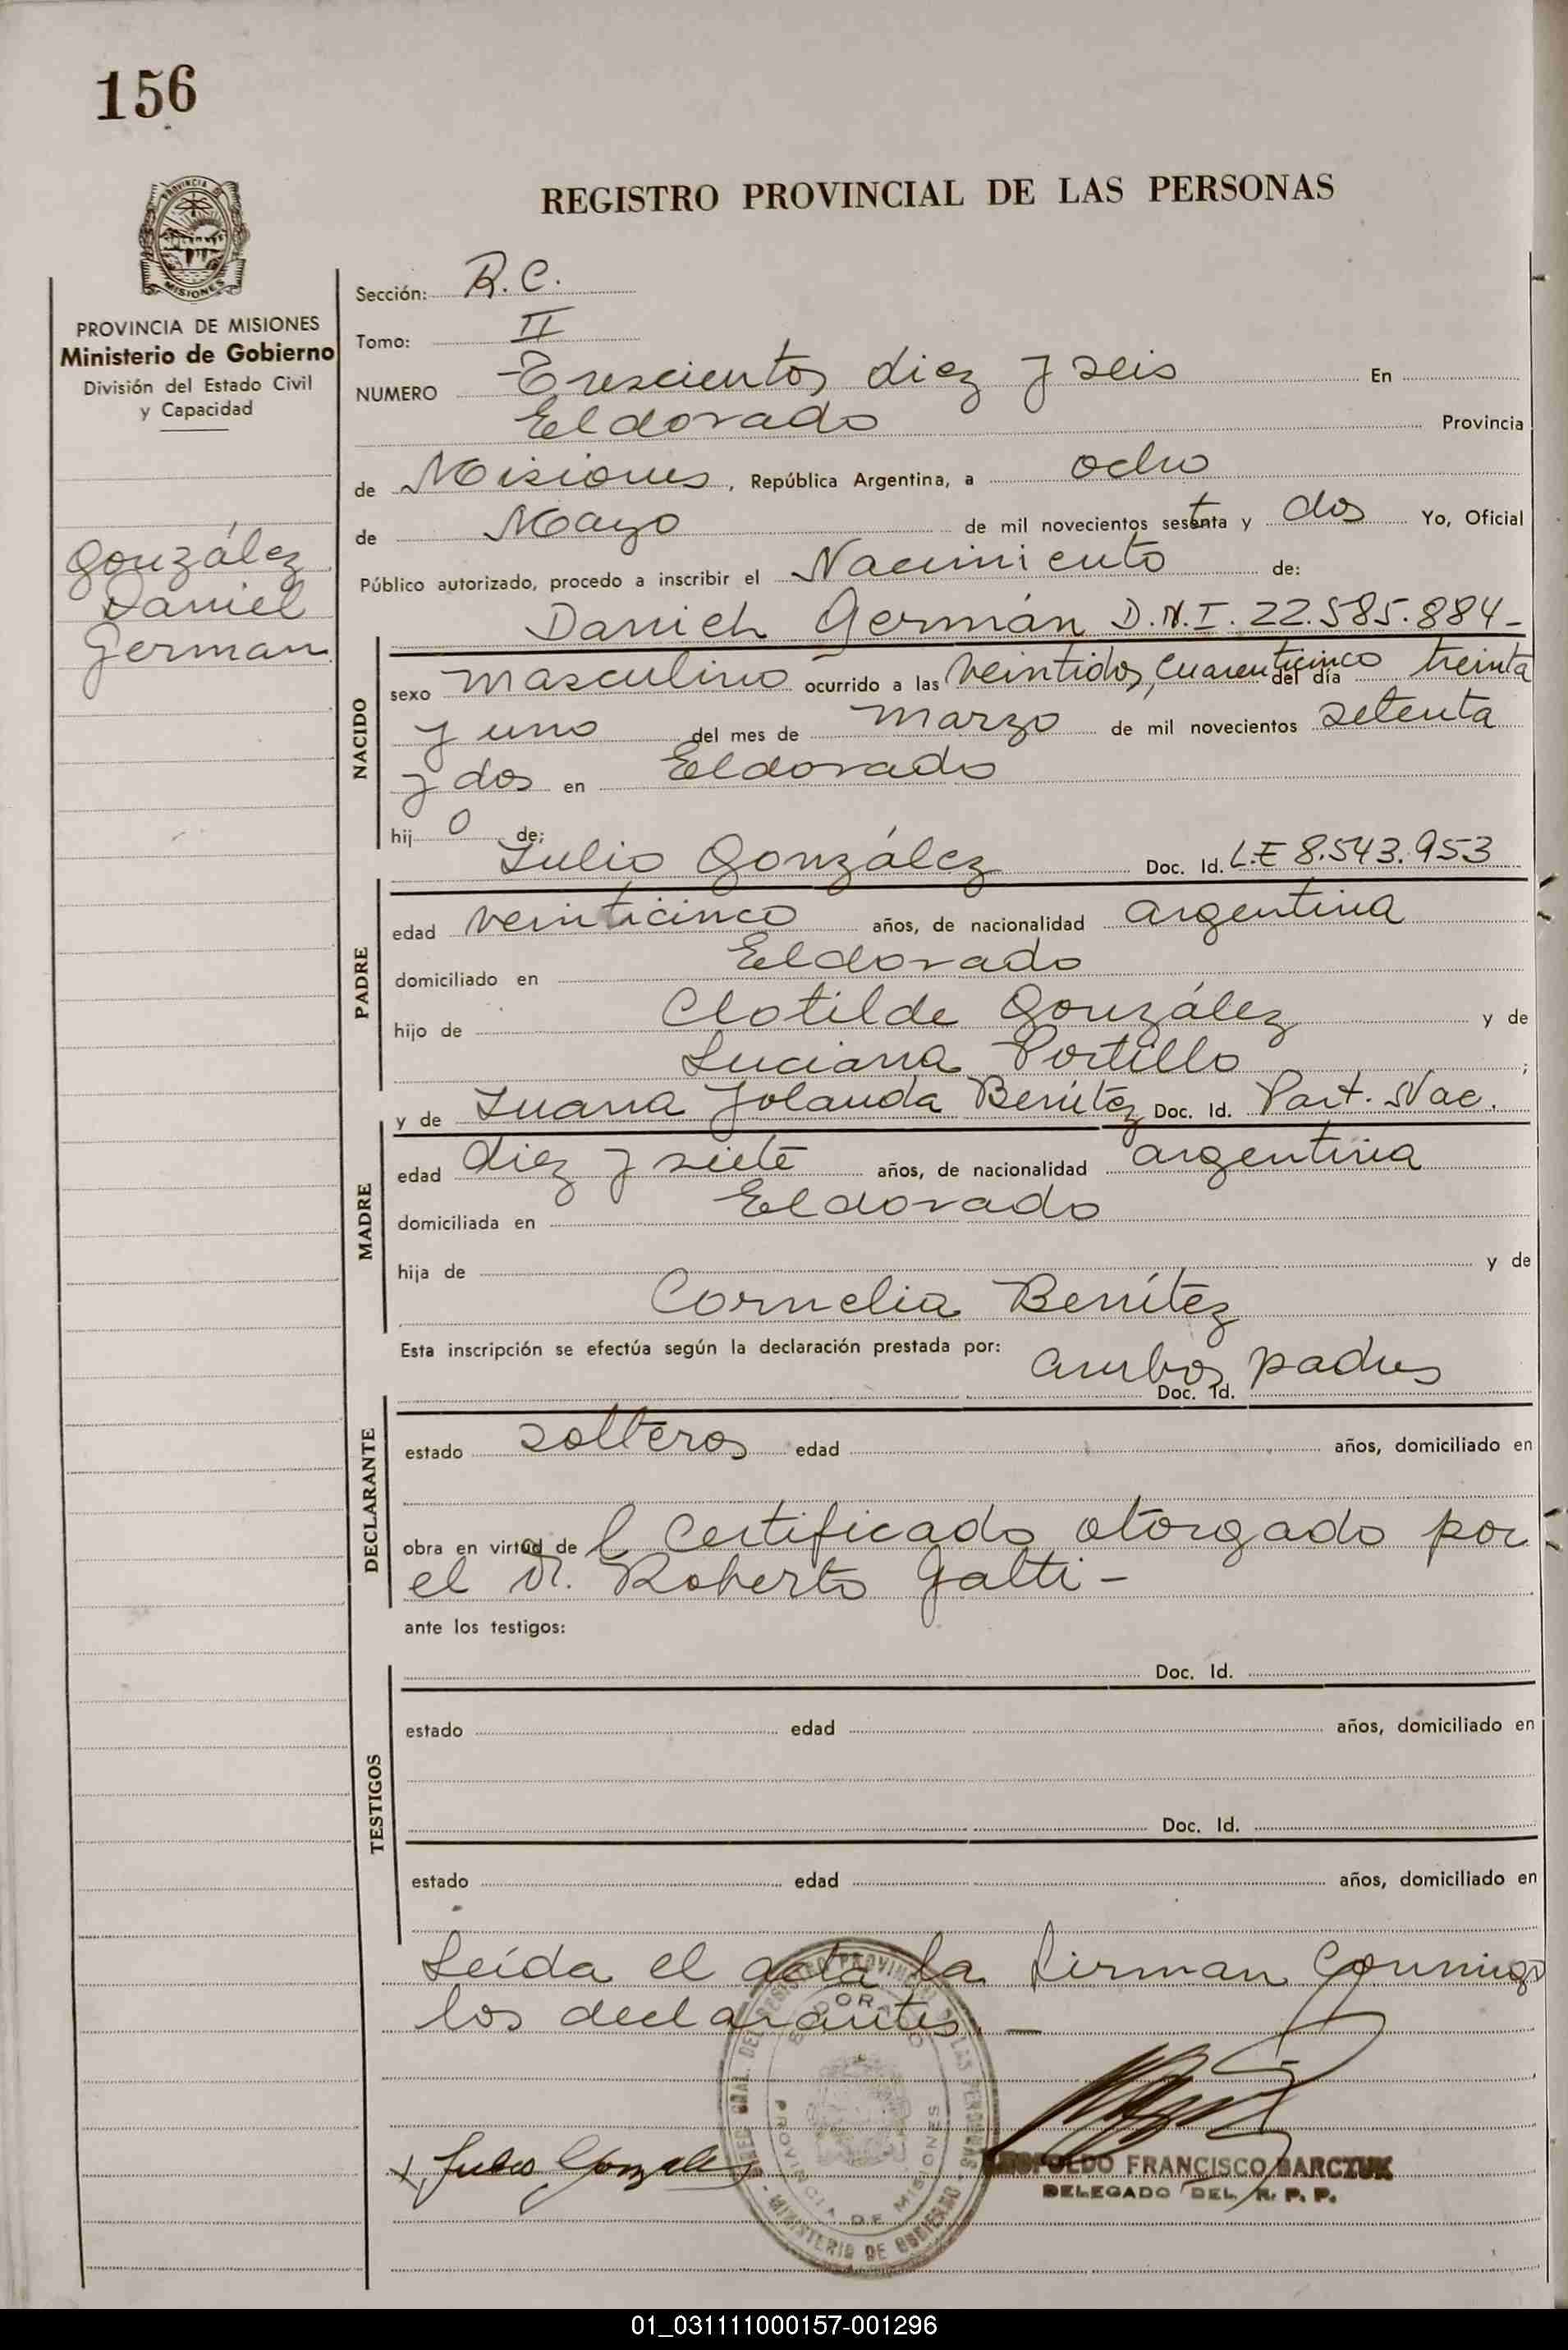 156
REGISTRO PROVINCIAL DE LAS PERSONAS
PROVINCIA DE
MISIONES
PROVINCIA DE MISIONES
Ministerio de Gobierno
División del Estado Civil
y Capacidad
González
Daniel
German
Sección: R.C.
Tomo: II
NUMERO Trescientos diez y seis En
Eldorado Provincia
de Misiones, República Argentina, a ocho
de Mayo de mil novecientos sesenta y dos Yo, Oficial
Público autorizado, procedo a inscribir el Nacimiento de:
Daniel Germán D.N.I. 22.585.884-
NACIDO
sexo masculino ocurrido a las veintidos, cuarenticinco del día treinta
y uno del mes de marzo de mil novecientos setenta
y dos en Eldorado
hij o de:
Julio González Doc. Id. L.E 8.543.953
PADRE
edad veinticinco años, de nacionalidad argentina
domiciliado en Eldorado
hijo de Clotilde González y de
Luciana Portillo ;
y de Juana Yolanda Benítez Doc. Id. Part. Nac.
MADRE
edad diez y siete años, de nacionalidad argentina
domiciliada en Eldorado
hija de y de
Cornelia Benítez
Esta inscripción se efectúa según la declaración prestada por: ambos padres
Doc. Id.
DECLARANTE
estado solteros edad años, domiciliado en
obra en virtud de l Certificado otorgado por
el Dr. Roberto Gatti -
ante los testigos:
Doc. Id.
TESTIGOS
estado edad años, domiciliado en
Doc. Id.
estado edad años, domiciliado en
Leída el acta la firman conmigo
los declarantes. —
DIREC. GRAL. DEL REGISTRO PROVINCIAL DE LAS PERSONAS - MINISTERIO DE GOBIERNO -
ELDORADO
PROVINCIA DE MISIONES
x Julio Gonzalez
LEOPOLDO FRANCISCO BARCZUK
DELEGADO DEL R. P. P.
01_031111000157-001296